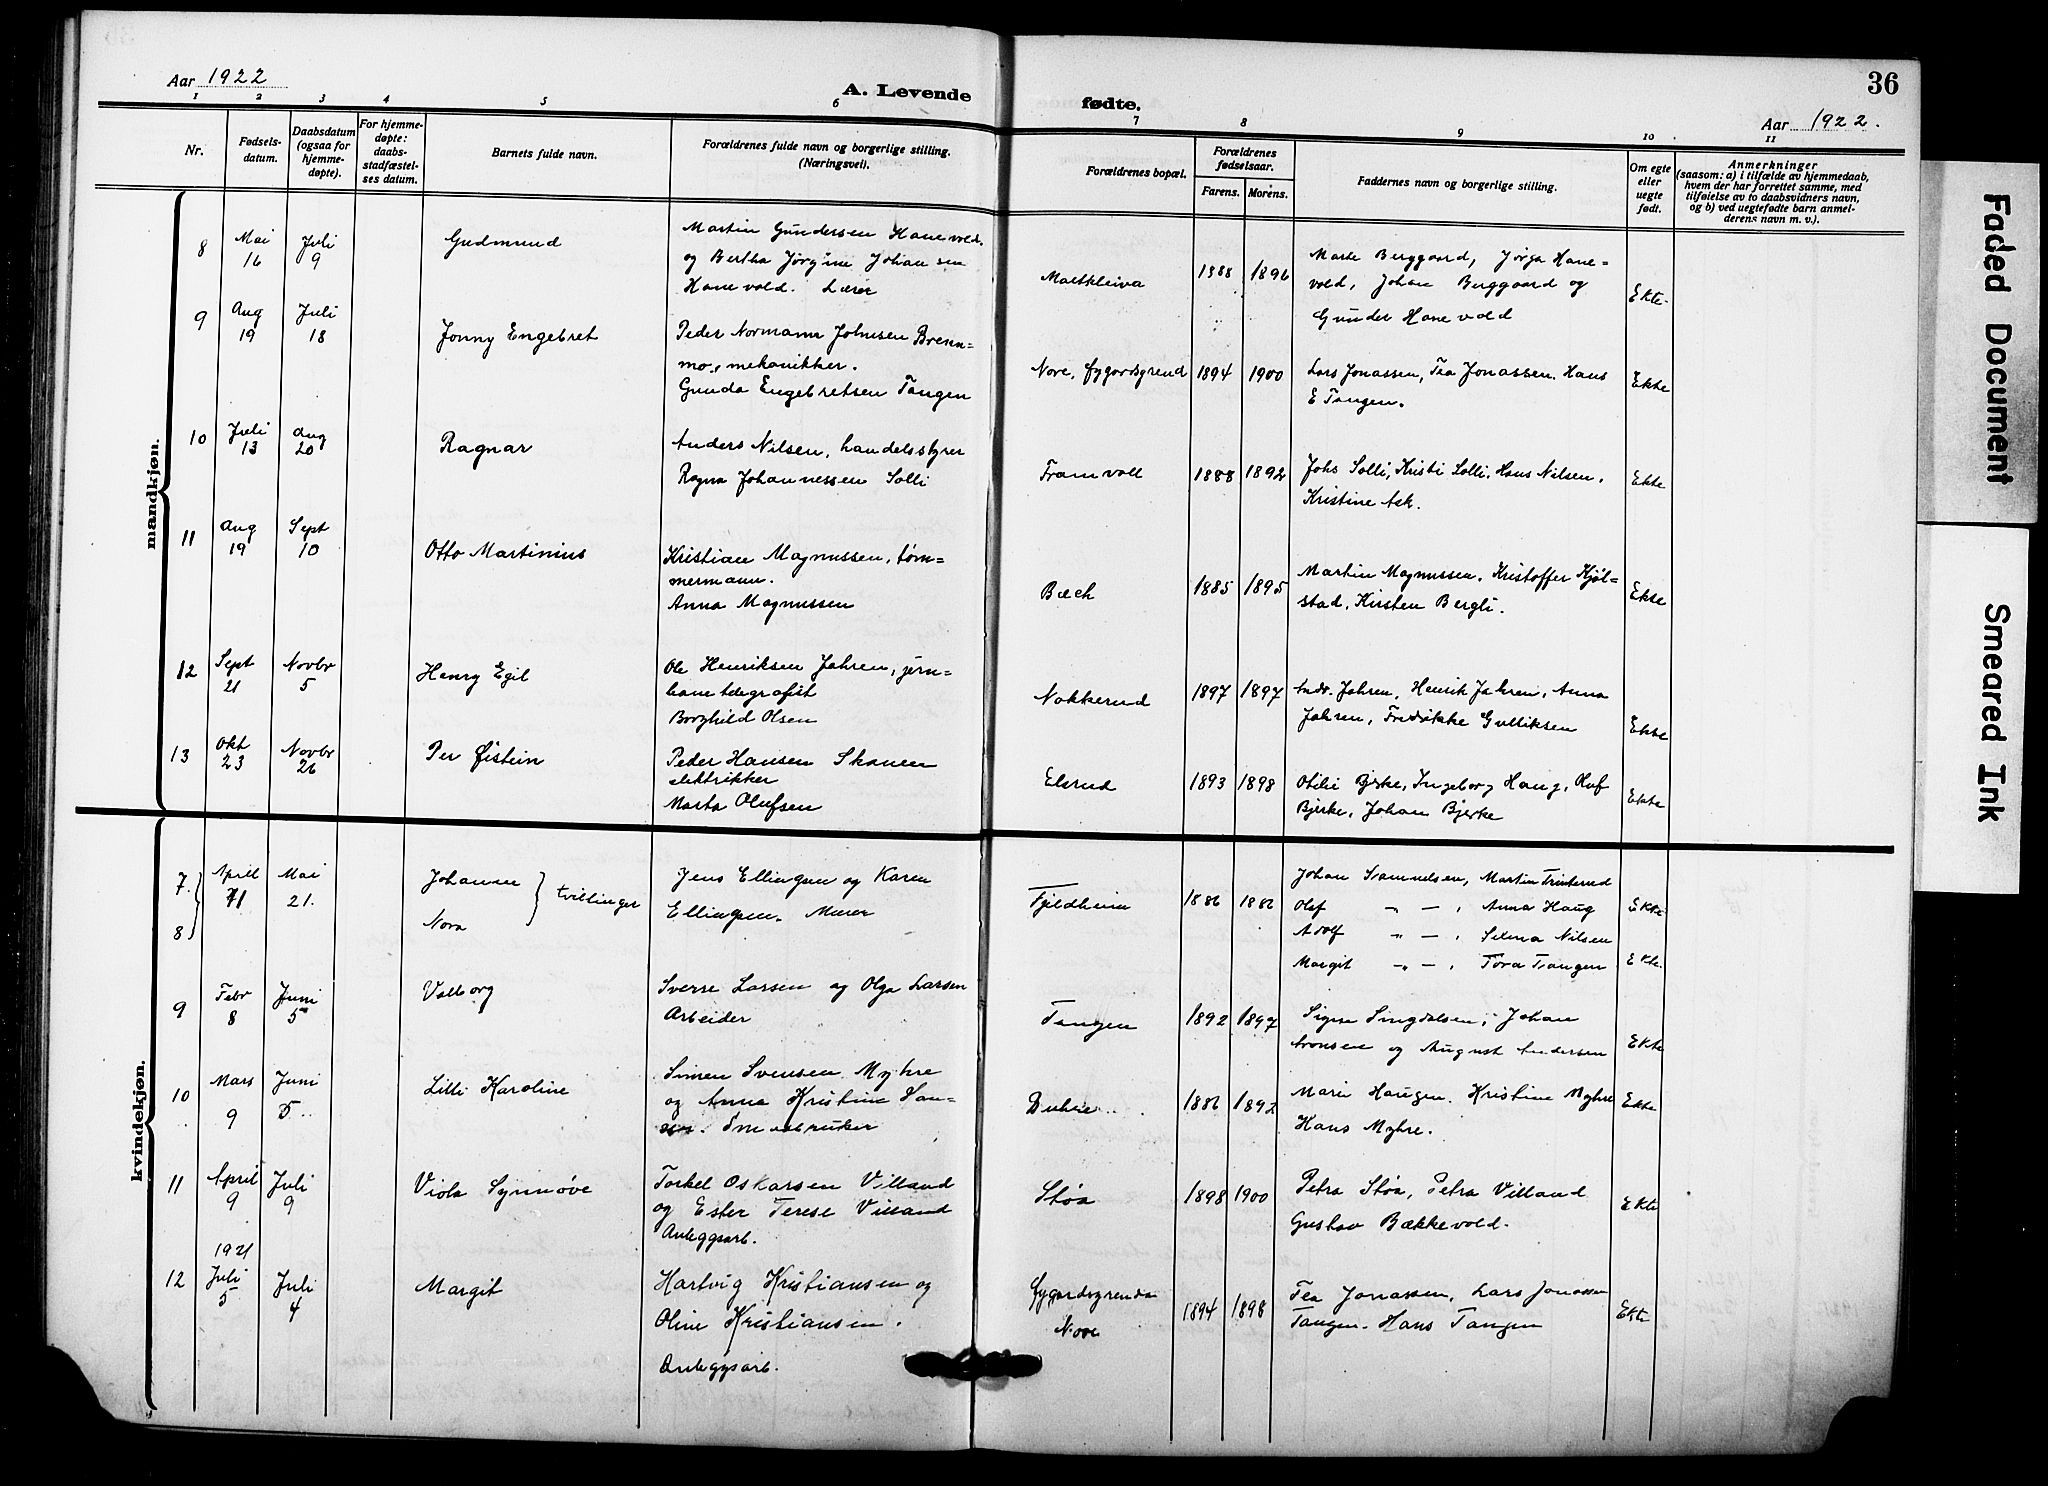 Aar 1922
A. Levende fødte.
36
Aar 1922.
1 2 3 4 5 6 7 8 9 10 11
Nr.
Fødsels-
datum.
Daabsdatum
(ogsaa for
hjemme-
døpte).
For hjemme-
døpte:
daabs-
stadfæstel-
ses datum.
Barnets fulde navn.
Forældrenes fulde navn og borgerlige stilling.
(Næringsvei).
Forældrenes bopæl.
Forældrenes
fødselsaar.
Farens. Morens.
Faddernes navn og borgerlige stilling.
Om egte
eller
uegte
født.
Anmerkninger
(saasom: a) i tilfælde av hjemmedaab,
hvem der har forrettet samme, med
tilføielse av to daabsvidners navn,
og b) ved uegtefødte barn anmel-
derens navn m. v.).
mandkjøn.
8
Mai
16
Juli
9
Gudmund
Martin Gundersen Hanevold
og Bertha Jørgine Johansen
Hanevold. Lærer
1888 1896
Marte Berggaard, Jørga Hane-
vold, Johan Berggaard og
Gunder Hanevold
Ekte
9
Aug
19
Juli
18
Jonny Engebret
Peder Normann Johnsen Brenn=
mo, mekanikker.
Gunda Engebretsen Tangen
Nore, Fygardsgrend
1894 1900
Lars Jonassen, Tea Jonassen, Hans
E Tangen.
Ekte
10
Juli
13
Aug
20
Ragnar
Anders Nilsen, handelsstyrer
Ragna Johannessen Solli
Framvoll
1888 1892
Johs Solli, Kristi Solli, Hans Nilsen,
Kristine Ask.
Ekte
11
Aug
19
Sept
10
Otto Martinius
Kristian Magnussen, tøm=
mermann.
Anna Magnussen
Bæch
1885 1895
Martin Magnussen, Kristoffer Kjøl=
stad, Kirsten Bergli.
Ekte
12
Sept
21
Novbr
5
Henry Egil
Ole Henriksen Jahren, jern=
banetelegrafist
Borghild Olsen
Nakkerud
1897 1897
Andr. Jahren, Henrik Jahren, Anna
Jahren, Fredrikke Gulliksen
Ekte
13
Okt
23
Novbr
26
Per Øistein
Peder Hansen Skauen
elektrikker
Marta Olufsen
Elsrud
1893 1898
Otilie Bjerke, Ingeborg Haug, Oluf
Bjerke, Johan Bjerke
Ekte
kvindekjøn.
7.
8
April
11
Mai
21.
Johanne
Nora
tvillinger
Jens Ellingsen og Karen
Ellingsen. Murer
Fjeldheim
1886 1886
Johan Samuelsen, Martin Trinterud
Olaf " — , Anna Haug
Adolf " — , Selma Nilsen
Margit " — , Tora Tangen
Ekte
Ekte.
9
Febr
8
Juni
5
Valborg
Sverre Larsen og Olga Larsen
Arbeider
Tangen
1892 1897
Signe Singdalsen, Johan
Aronsen og August Andersen
Ekte
10
Mars
9
Juni
5.
Lilli Karoline
Simen Svensen Myhre
og Anna Kristine Han=
sen. Småbruker
1886 1892
Marie Haugen. Kristine Myhre
Hans Myhre.
Ekte
11
April
9
Juli
9
Viola Synnøve
Torkel Oskarsen Villand
og Ester Terese Villand
Anleggsarb.
Støa
1898 1900
Petra Støa, Petra Villand
Gustav Bækkevold.
Ekte
12
1921
Juli
5
Juli
4
Margit
Hartvig Kristiansen og
Oline Kristiansen.
Anleggsarb.
Fygardsgrenda
Nore
1894 1898
Tea Jonassen, Lars Jonassen
Tangen. Hans Tangen
Ekte
Faded Document
Smeared Ink